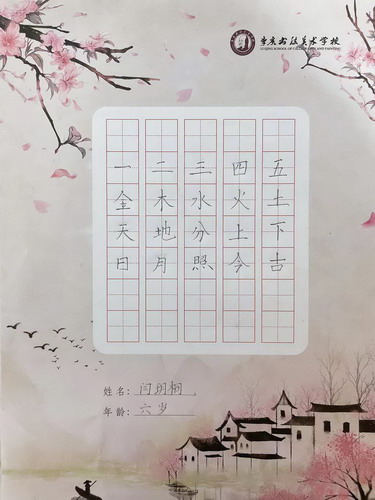 书法美术学校
SCHOOL OF CALLIGRAPHY AND PAINTING
一二三四五
金木水火土
天地分上下
日月照今古
姓名：闫玥
年龄：六岁